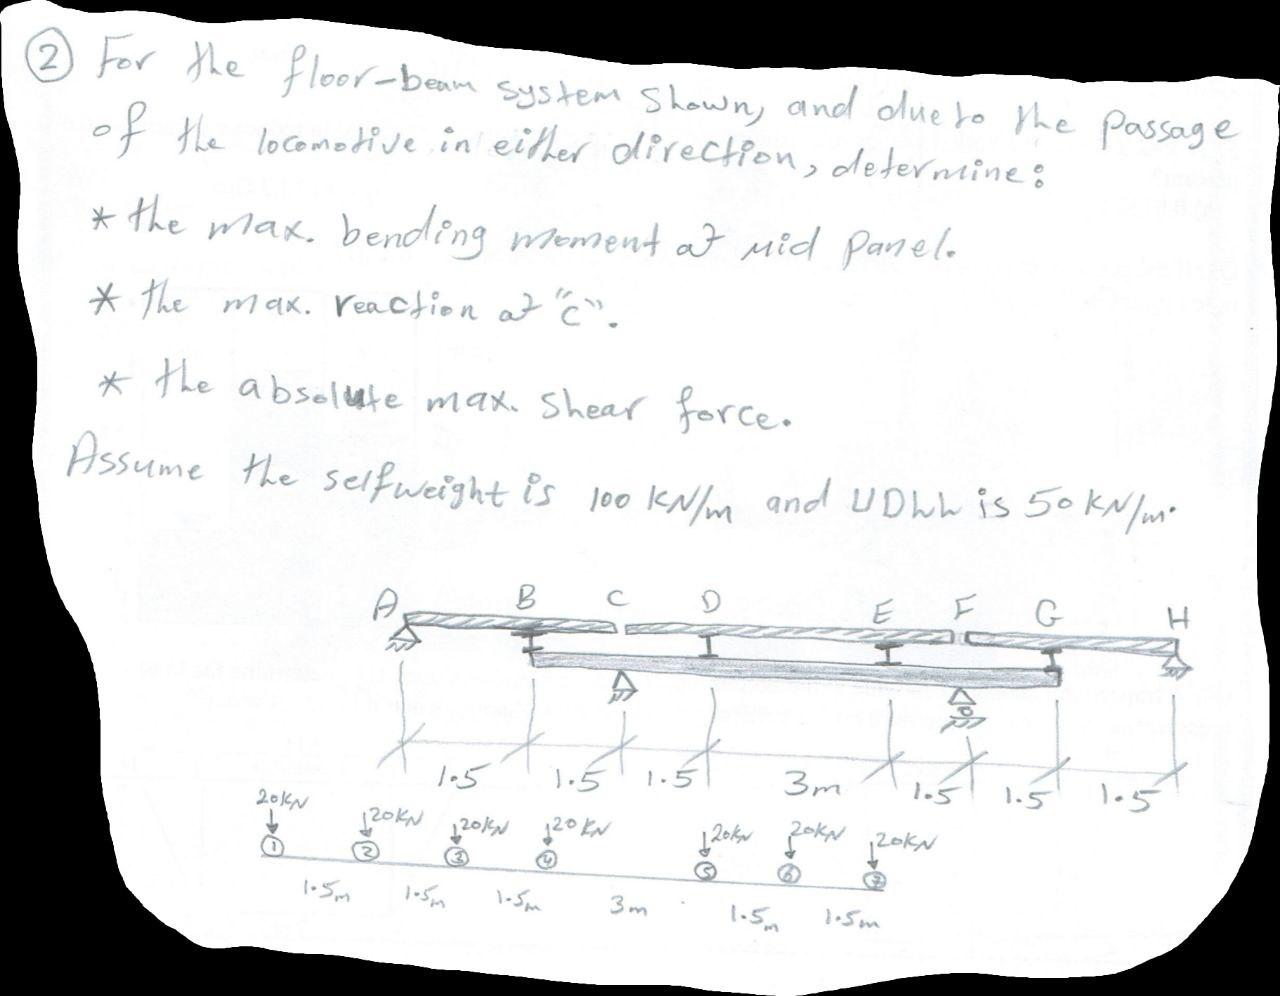 ② For the floor-beam system shown, and due to the passage
of the locomotive in either direction, determine:
* the max. bending moment at mid panel.
* the max. reaction at "C".
* the absolute max. shear force.
Assume the selfweight is 100 KN/m and UDLL is 50 KN/m.
A B C D E F G H
1.5 1.5 1.5 3m 1.5 1.5 1.5
20KN 20KN 20KN 20KN 20KN 20KN 20KN
① ② ③ ④ ⑤ ⑥ ⑦
1.5m 1.5m 1.5m 3m 1.5m 1.5m